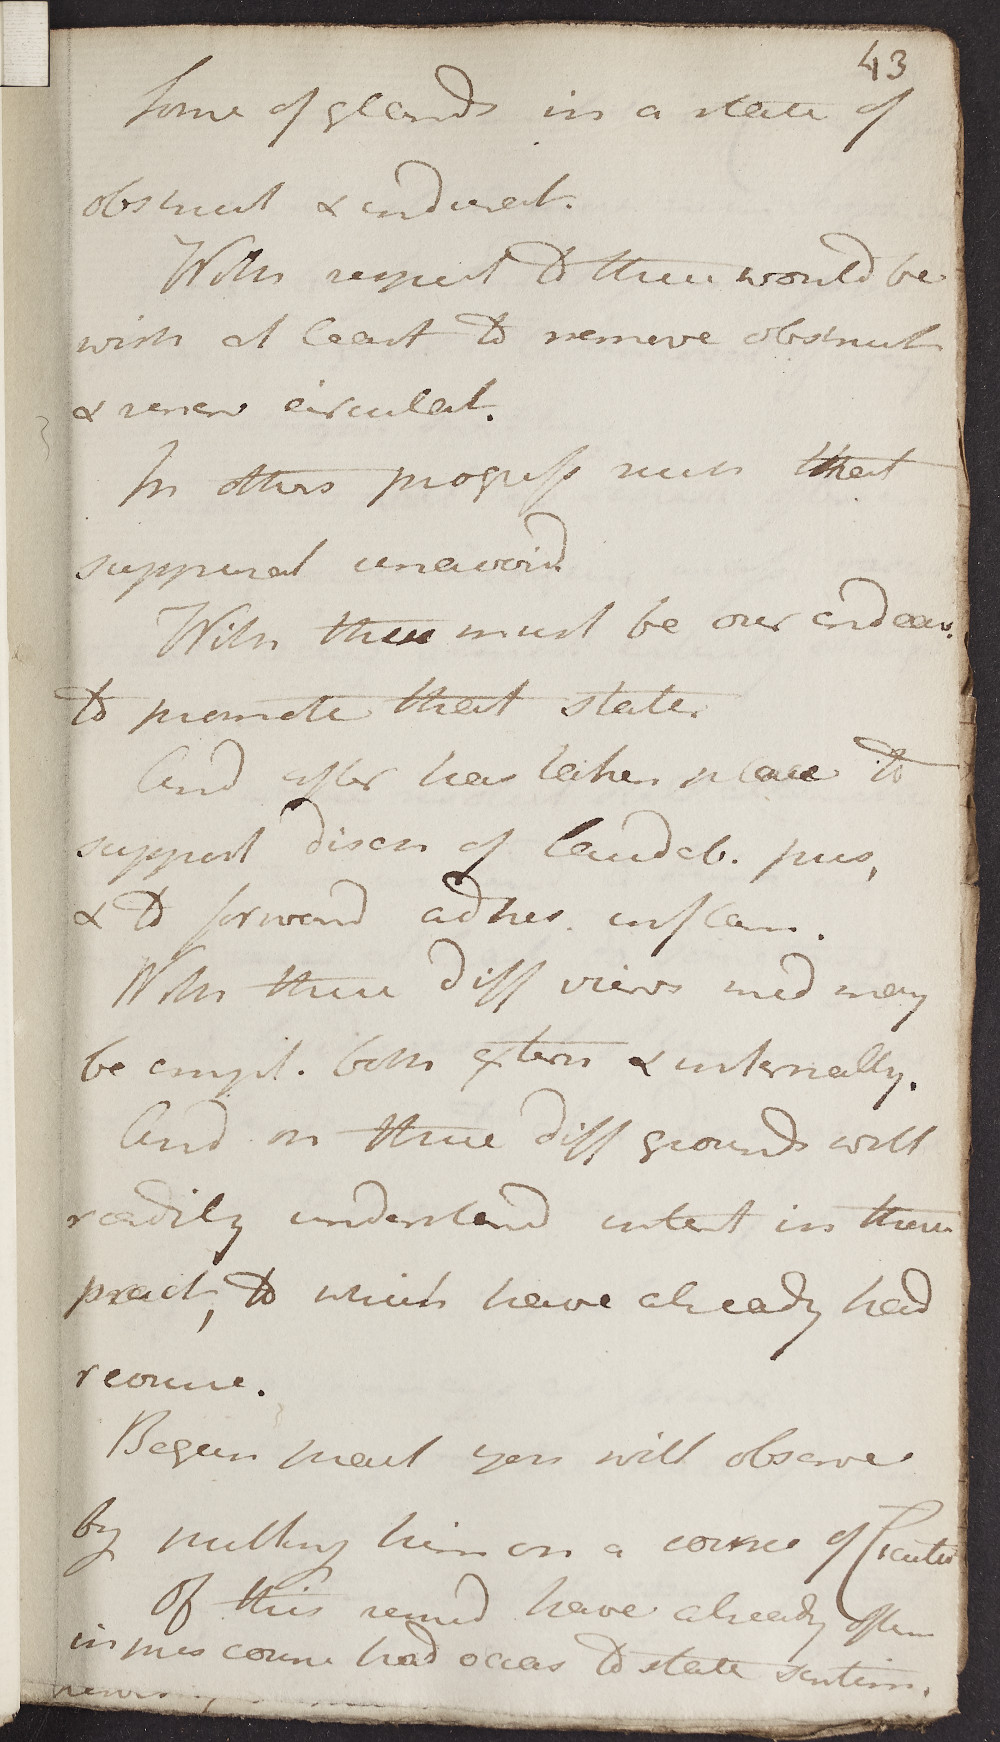 43
Some of glands in a state of
obstruct & indurat.
With respect to these would be
wish at least to remove obstruct
& renew circulat.
In others progress such that
suppurat unavoid
With these must be our endeav.
to promote that state.
And after has taken place to
support discn of laudab. pus,
& to forward adhes. inflam.
With these diff views med may
be empl. both extern & internally.
And on these diff grounds will
readily understand intent in these
pract, to which have already had
recourse.
Begun pract you will observe
by putting him on a course of Cicuta
Of this remed have already often
in pres course had occas to state sentim.